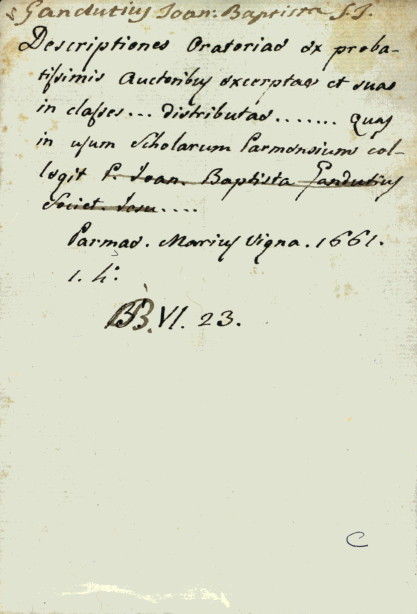 Gandutius Joan: Baptista S. J.
Descriptiones Oratoriae ex proba-
tissimis Auctoribus excerptae et suas
in classes... distributae....... Quas
in usum Scholarum Parmensium col-
legit P. Joan. Baptista Gandutius
Societ. Jesu....
Parmae. Marius Vigna. 1661.
1. 4°.
BB. VI. 23.
C